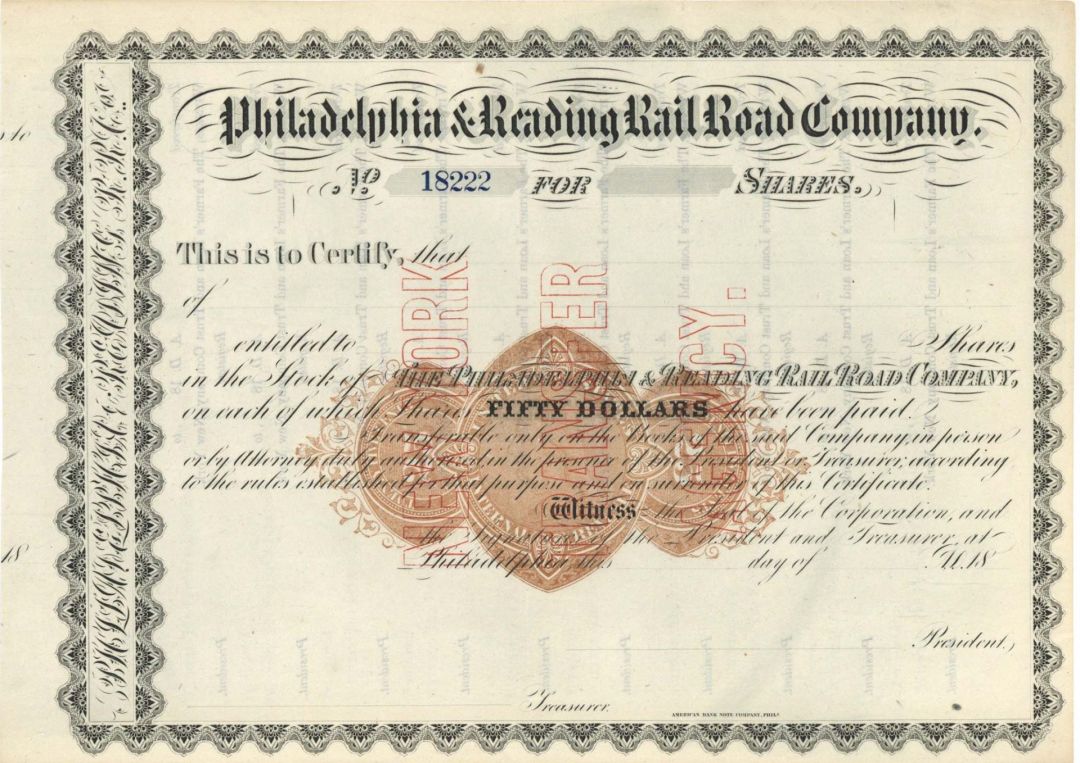 Philadelphia & Reading Rail Road Company.
No 18222 FOR SHARES.
This is to Certify, that
of
entitled to Shares
in the Stock of THE PHILADELPHIA & READING RAIL ROAD COMPANY,
on each of which Shares FIFTY DOLLARS have been paid.
Transferable only on the Books of the said Company, in person
or by Attorney duly authorized in the presence of the President or Treasurer, according
to the rules established for that purpose and on surrender of this Certificate.
Witness the Seal of the Corporation, and
the Signatures of the President and Treasurer, at
Philadelphia this day of A.D. 18
President.
Treasurer.
AMERICAN BANK NOTE COMPANY, PHILA.
NEW YORK
TRANSFER
AGENCY.
s to
18